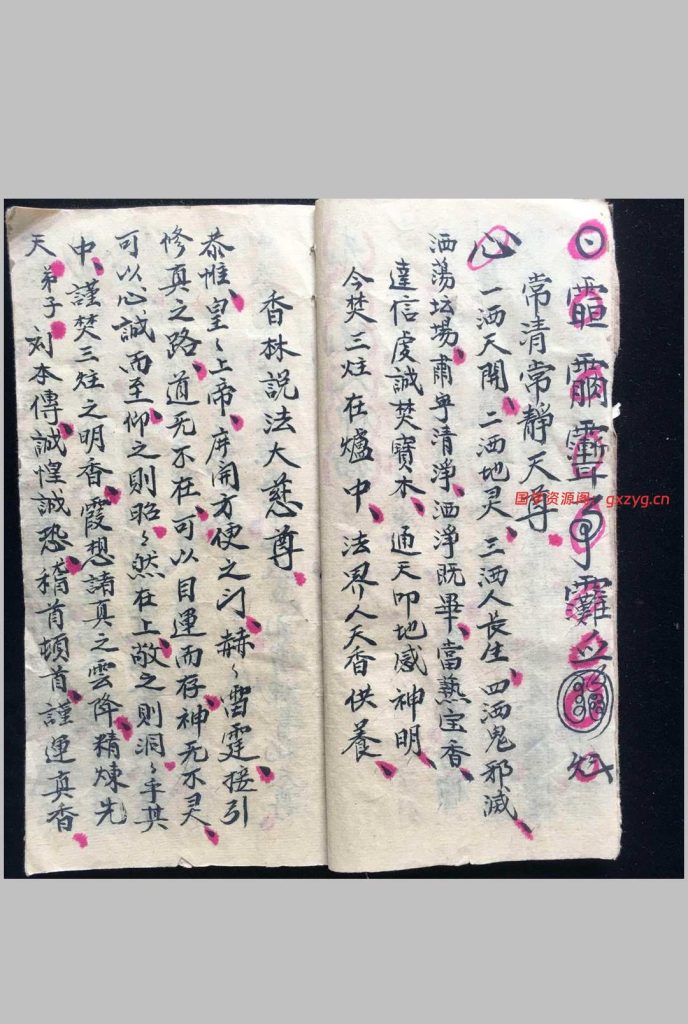 常清常静天尊
心 一洒天開、二洒地灵、三洒人長生、四洒鬼邪滅、
洒蕩坛場、肅宁清淨、洒淨既畢、當爇宝香、
達信虔誠焚寶木、通天叩地感神明、
今焚三炷在爐中、法界人天香供養、
香林説法大慈尊、
恭惟、皇〻上帝、庌開方便之门、赫〻雷霆、接引
修真之路、道无不在、可以目運而存、神无不灵、
可以心誠而至、仰之則昭〻然在上、敬之則洞〻乎其
中、謹焚三炷之明香、霞想諸真之雲降、精煉先
天、弟子、刘本傳、誠惶誠恐、稽首頓首、謹運真香、
国学资源阁 gxzyg.cn